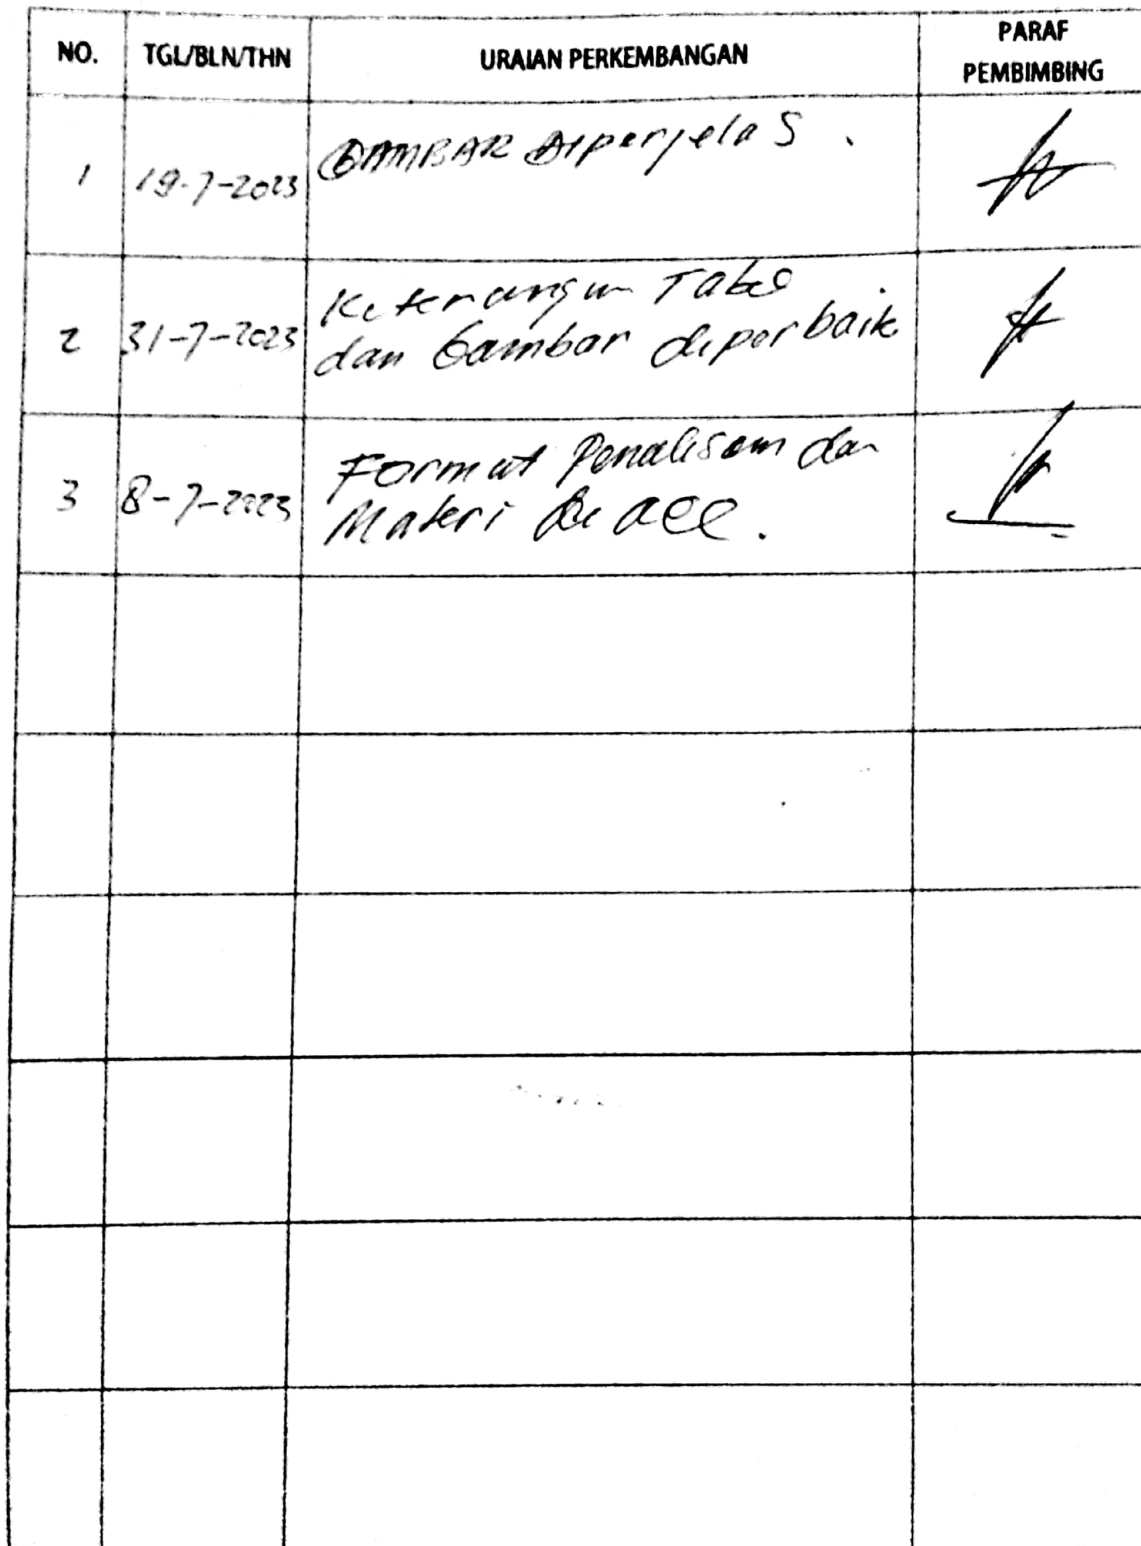 NO. TGL/BLN/THN URAIAN PERKEMBANGAN PARAF PEMBIMBING
1 19-7-2023 GAMBAR Diperjelas.
2 31-7-2023 Keterangan Tabel
dan Gambar diperbaik
3 8-7-2023 Format Penulisan dan
Materi di acc.